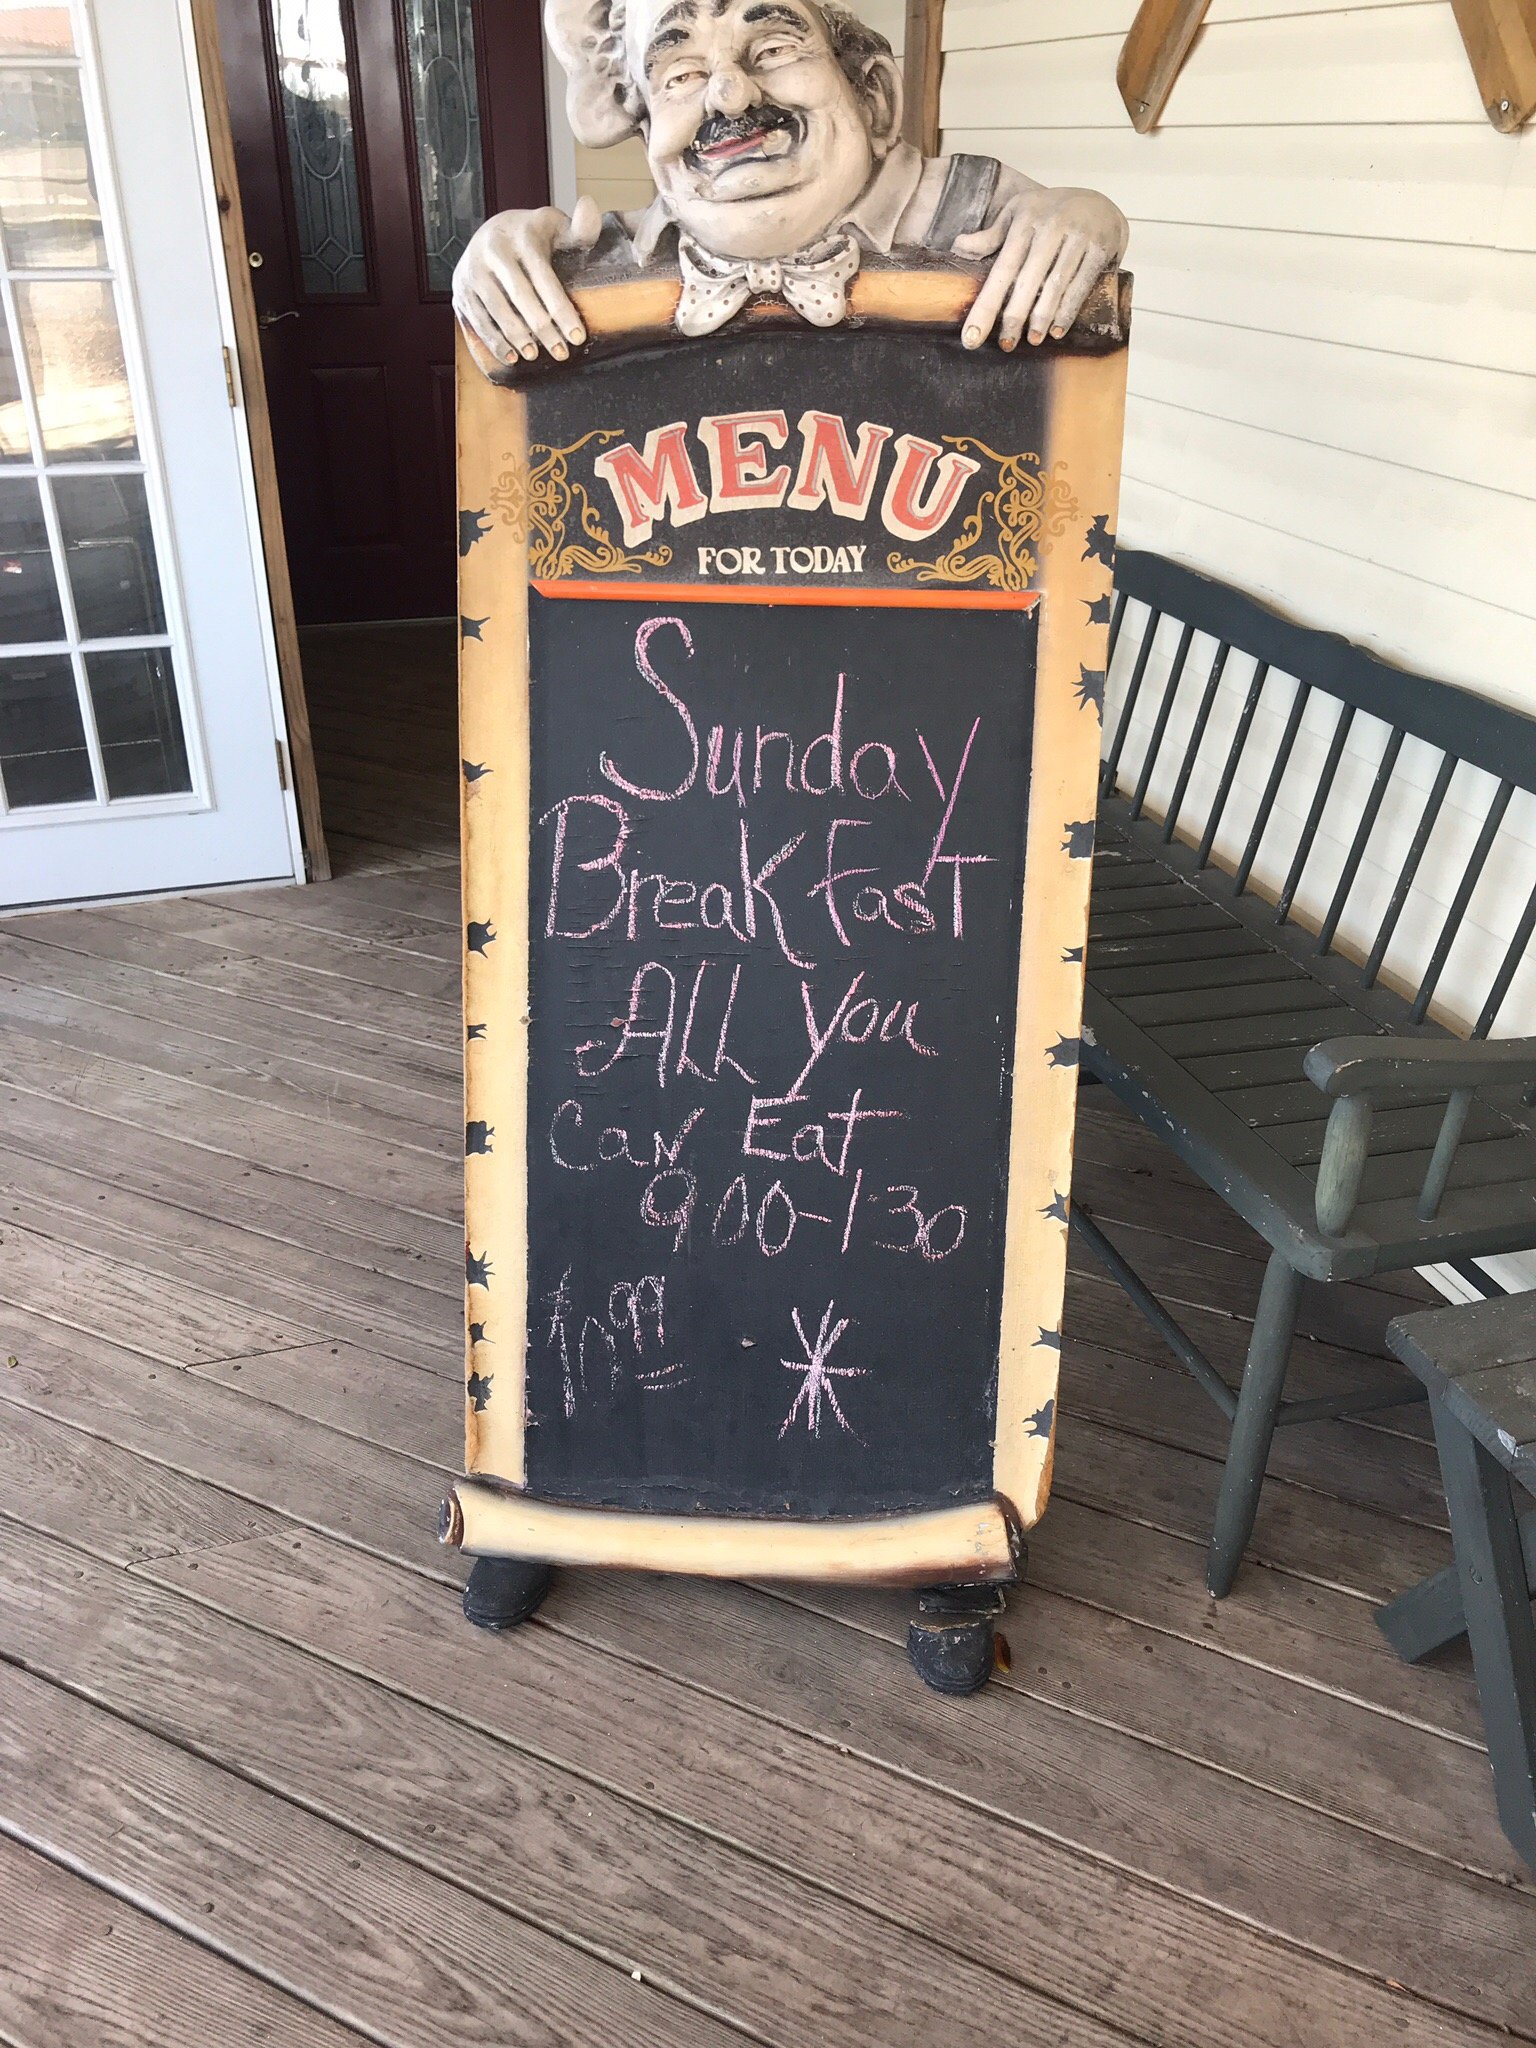 MENU
FOR TODAY
Sunday
BreakFast
All you
Can Eat
9:00-1:30